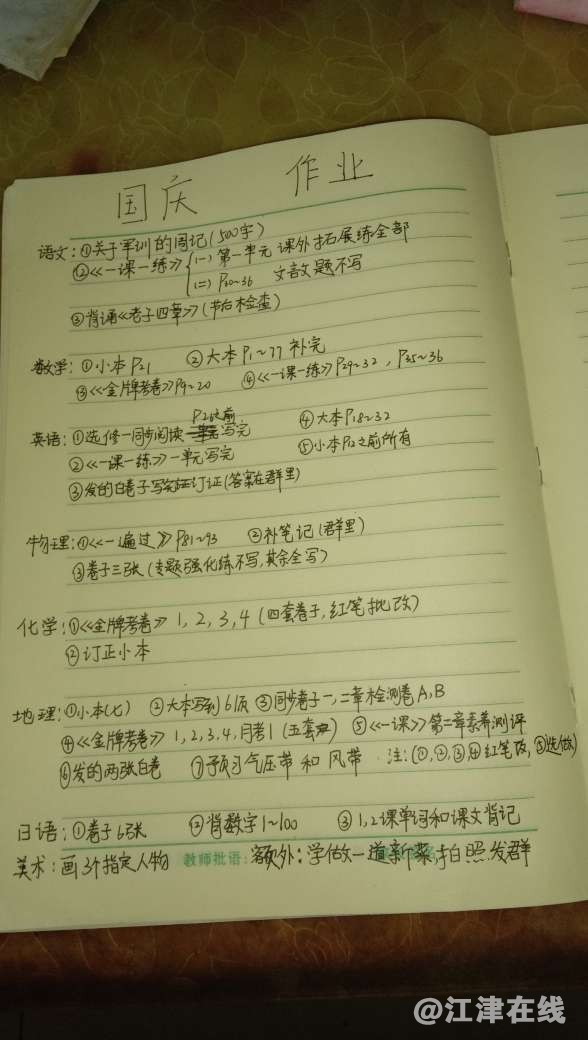 国庆 作业
语文：①关于军训的周记(500字)
②《一课一练》(一)第一单元 课外拓展练全部
(二)P30~36 文言文题不写
③背诵《老子四章》(节后检查)
数学：①小本P21 ②大本P1~77补完
③《金牌考卷》P9~20 ④《一课一练》P29~32，P35~36
英语：①选修一同步阅读P26之前写完 ④大本P18~32
②《一课一练》一单元写完 ⑤小本P12之前所有
③发的白卷子写完订证(答案在群里)
物理：①《一遍过》P81~93 ②补笔记(群里)
③卷子三张(专题强化练不写，其余全写)
化学：①《金牌考卷》1，2，3，4(四套卷子，红笔批改)
②订正小本
地理：①小本(七) ②大本写到61页 ③同步卷子一，二章检测卷A，B
④《金牌考卷》1，2，3，4，月考1(五套) ⑤《一课》第二章素养测评
⑥发的两张白卷 ⑦预习气压带和风带 注：(①，②，③，④红笔改，⑤选做)
日语：①卷子6张 ②背数字1~100 ③1，2课单词和课文背记
美术：画3个指定人物 教师批语： 额外：学做一道新菜拍照发群
@江津在线